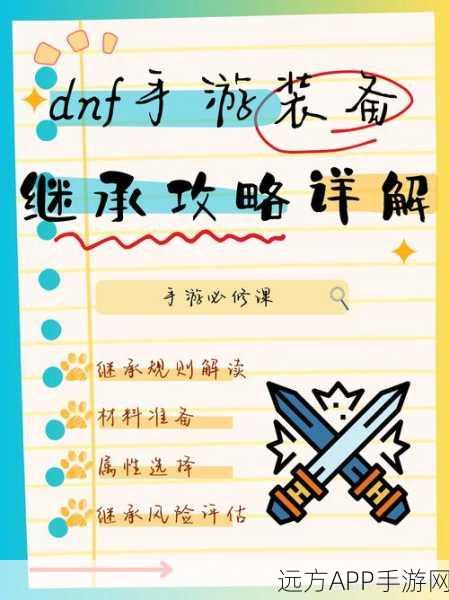 dnf手游装备
继承攻略详解
手游必修课
继承规则解读
材料准备
属性选择
继承风险评估
远方APP手游网